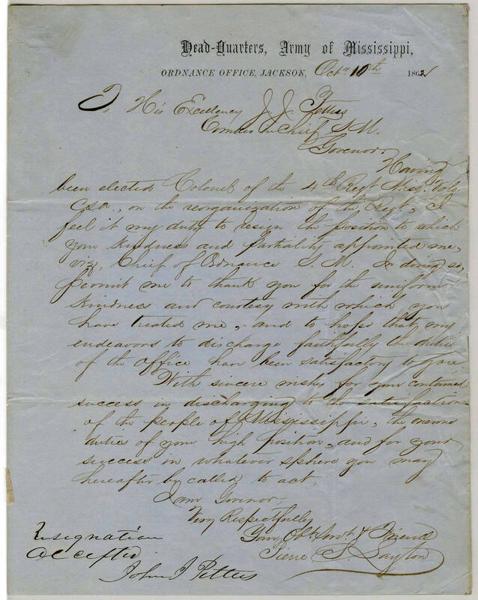 Head-Quarters, Army of Mississippi,
ORDNANCE OFFICE, JACKSON, Octr 10th 1862
To His Excellency J. J. Pettus
Comdr in Chief S. M.
Governor
Having
been elected Colonel of the 4th Regt Miss Vols
CSA., on the reorganization of the Regt, I
feel it my duty to resign the position to which
your kindness and partiality appointed me
viz, Chief of Ordnance S. M. In doing so,
permit me to thank you for the uniform
kindness and courtesy with which you
have treated me, and to hope that my
endeavors to discharge faithfully the duties
of the office have been satisfactory to you
With sincere wishes for your continued
success in discharging to the satisfaction
of the people of Mississippi, the
duties of your high position, and for your
success in whatever sphere you may
hereafter be called to act.
I am Govornor,
Very Respectfully
Your Obt Srvt & Friend
Pierre S. Layton
Resignation
accepted
John J Pettus